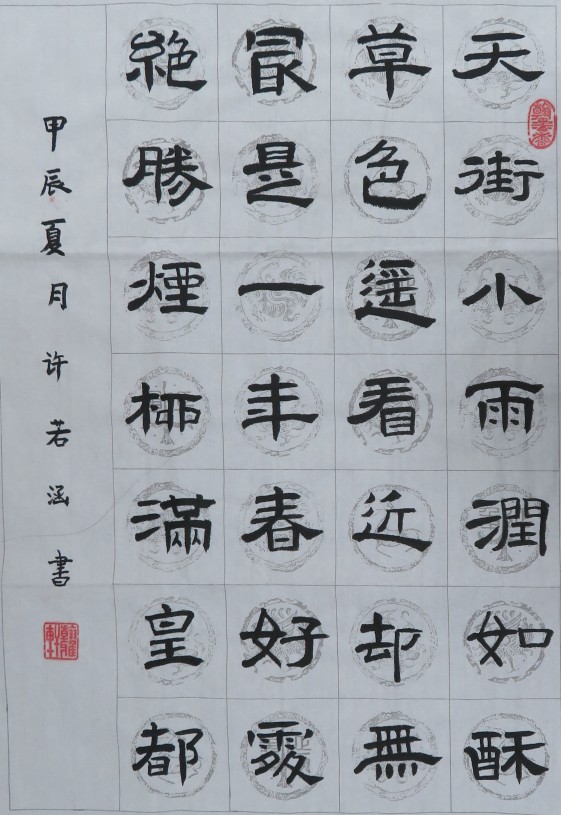 天街小雨潤如酥
草色遥看近却無
最是一年春好處
絶勝煙柳滿皇都
甲辰夏月许若涵書